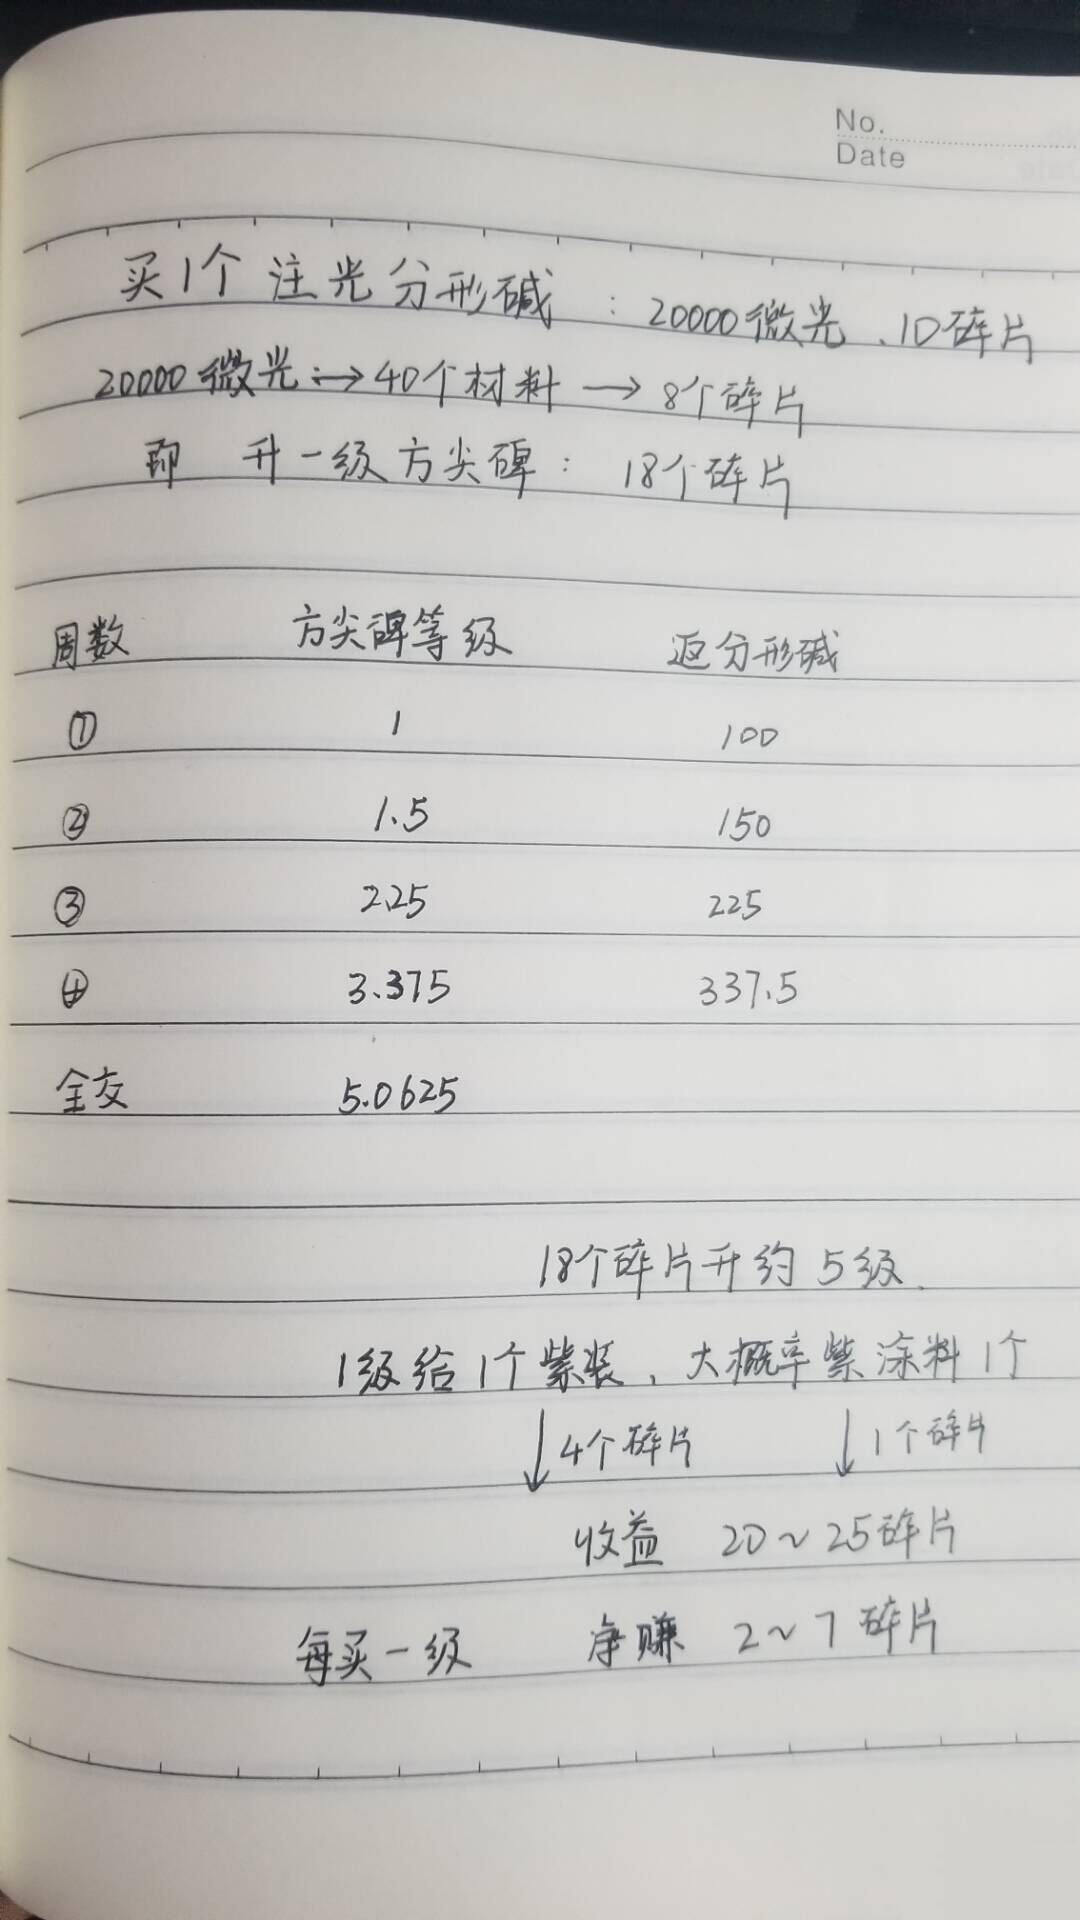 No.
Date
买1个注光分形碱：20000微光、10碎片
20000微光↔40个材料→8个碎片
即 升一级方尖碑：18个碎片
周数 方尖碑等级 返分形碱
① 1 100
② 1.5 150
③ 2.25 225
④ 3.375 337.5
全交 5.0625
18个碎片升约5级.
1级给1个紫装、大概率紫涂料1个
↓4个碎片 ↓1个碎片
收益 20~25碎片
每买一级 净赚 2~7碎片